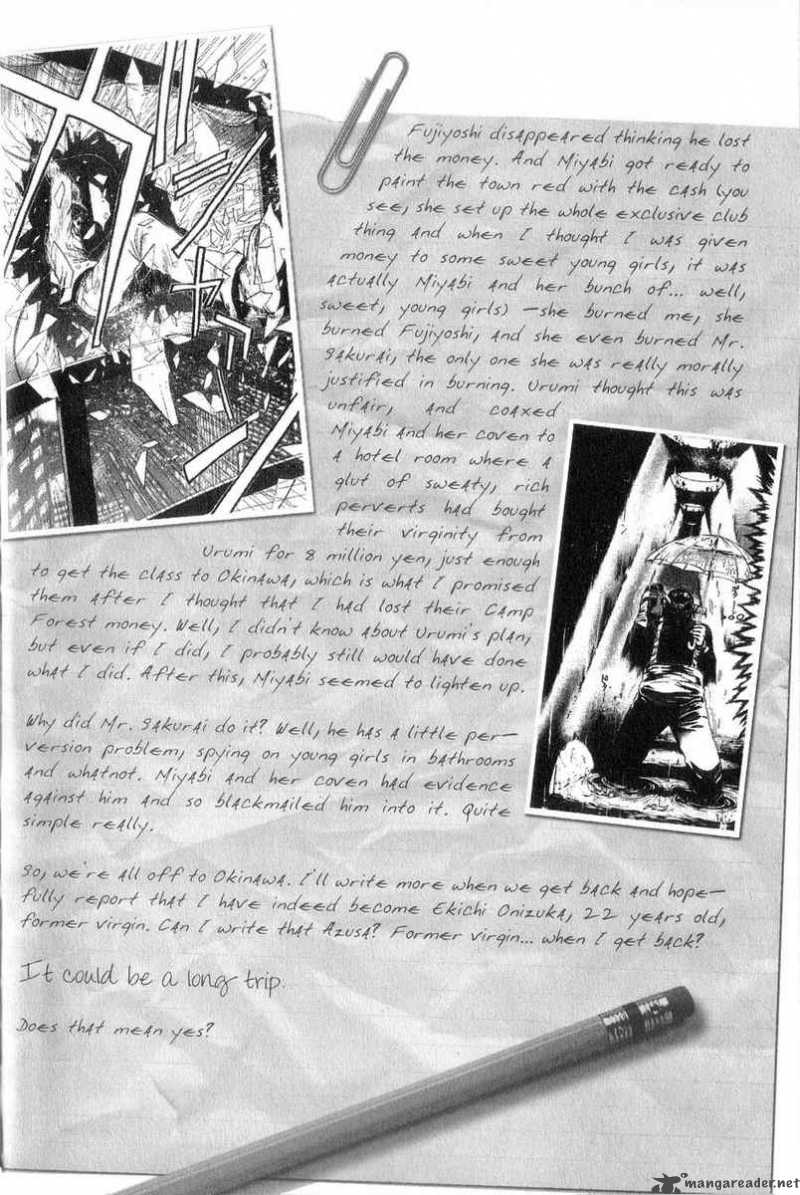 Fujiyoshi disappeared thinking he lost
the money. And Miyabi got ready to
paint the town red with the cash (you
see, she set up the whole exclusive club
thing and when I thought I was given
money to some sweet young girls, it was
actually Miyabi and her bunch of... well,
sweet, young girls) —she burned me, she
burned Fujiyoshi, and she even burned Mr.
Sakurai, the only one she was really morally
justified in burning. Urumi thought this was
unfair, and coaxed
Miyabi and her coven to
a hotel room where a
glut of sweaty, rich
perverts had bought
their virginity from
Urumi for 8 million yen, just enough
to get the class to Okinawa, which is what I promised
them after I thought that I had lost their Camp
Forest money. Well, I didn't know about Urumi's plan,
but even if I did, I probably still would have done
what I did. After this, Miyabi seemed to lighten up.
Why did Mr. Sakurai do it? Well, he has a little per-
version problem, spying on young girls in bathrooms
and whatnot. Miyabi and her coven had evidence
against him and so blackmailed him into it. Quite
simple really.
So, we're all off to Okinawa. I'll write more when we get back and hope-
fully report that I have indeed become Ekichi Onizuka, 22 years old,
former virgin. Can I write that Azusa? Former virgin... when I get back?
It could be a long trip.
Does that mean yes?
mangareader.net